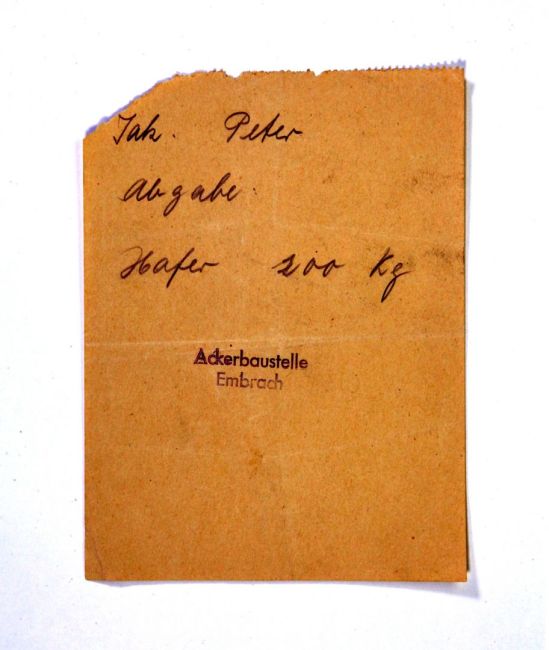 Jak. Peter
Abgabe:
Hafer 200 Kg
Ackerbaustelle
Embrach